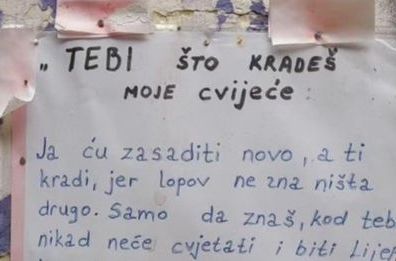 „ TEBI ŠTO KRADEŠ
MOJE cvijeće :
Ja ću zasaditi novo, a ti
kradi, jer lopov ne zna ništa
drugo. Samo da znaš, kod teb
nikad neće cvjetati i biti Lijep